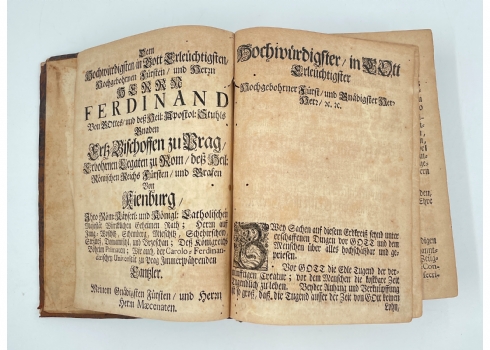 Dem
Hochwürdigsten in Gott Erleüchtigsten,
Hochgebohrnen Fürsten, und Herrn
HERRN
FERDINAND
Von GOttes, und deß Heil: Apostol: Stuhls
Gnaden
Ertz Bischoffen zu Prag,
Gebohrnen Legaten zu Rom, deß Heil:
Römischen Reichs Fürsten, und Grafen
Von
Kienburg,
Ihro Röm: Kayserl: und Königl: Catholischen
Majestät Würcklichen Geheimen Rath; Herrn auf
Königreichs
Böheim Primaten; Wie auch der Carolo-Ferdinan-
deischen Universität zu Prag Immerwährenden
Cantzler.
Meinem Gnädigsten Fürsten, und Herrn
Herrn Mæcenaten.
Hochwürdigster/ in GOtt
Erleüchtigster
Hochgebohrner Fürst/ und Gnädigster Her-
Herr/ x. x.
ZWey Sachen auf diesem Erdkreiß seynd unter
erschaffenen Dingen vor GOTT und dem
Menschen über alles hochschätzbar und ge-
priesen.
Vor GOTT die Edle Tugend der ver-
nünfftigen Creatur; vor dem Menschen die kostbare Zeit
tugendlich zu leben. Beyder Anhang und Verknüpffung
ist so groß, daß, die Tugend ausser der Zeit von GOtt keinen
Lohn,